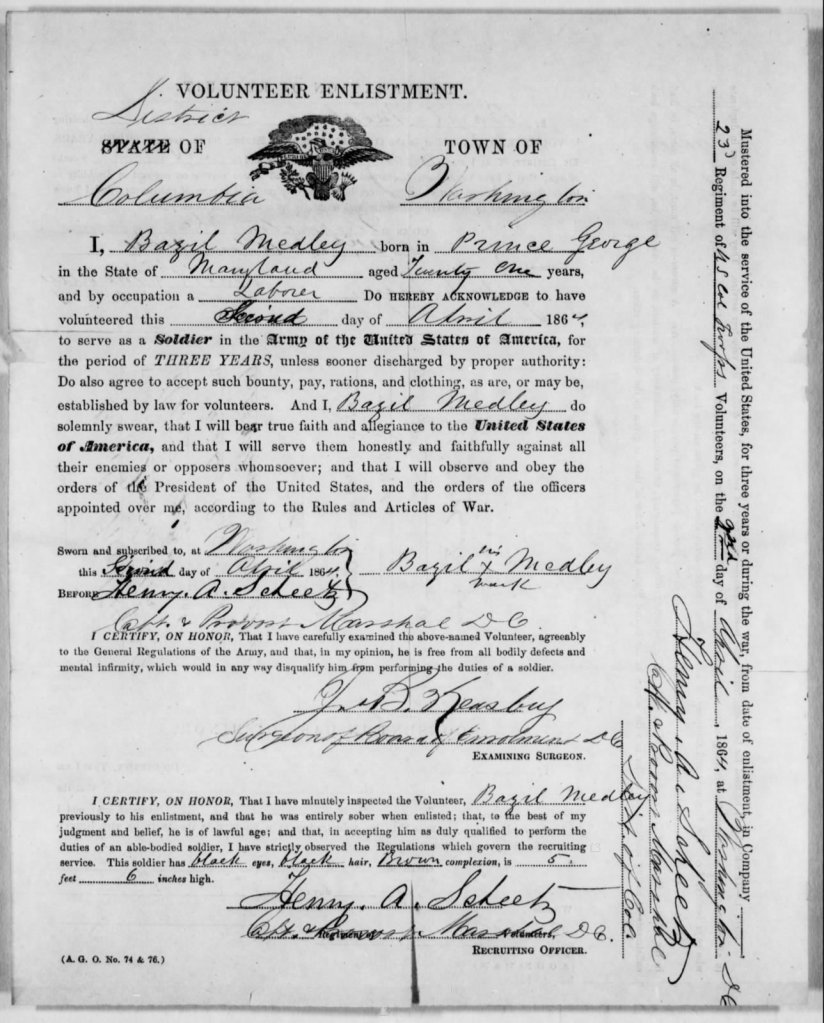 VOLUNTEER ENLISTMENT.
District
STATE OF TOWN OF
Columbia Washington
I, Bazil Medley born in Prince George
in the State of Maryland aged Twenty One years,
and by occupation a Laborer Do HEREBY ACKNOWLEDGE to have
volunteered this Second day of April 1864,
to serve as a Soldier in the Army of the United States of America, for
the period of THREE YEARS, unless sooner discharged by proper authority:
Do also agree to accept such bounty, pay, rations, and clothing, as are, or may be,
established by law for volunteers. And I, Bazil Medley do
solemnly swear, that I will bear true faith and allegiance to the United States
of America, and that I will serve them honestly and faithfully against all
their enemies or opposers whomsoever; and that I will observe and obey the
orders of the President of the United States, and the orders of the officers
appointed over me, according to the Rules and Articles of War.
Sworn and subscribed to, at Washington
this Second day of April 1864,
BEFORE Henry. A. Scheetz
Capt. & Provost Marshal D C.
Bazil his x mark Medley
I CERTIFY, ON HONOR, That I have carefully examined the above-named Volunteer, agreeably
to the General Regulations of the Army, and that, in my opinion, he is free from all bodily defects and
mental infirmity, which would in any way disqualify him from performing the duties of a soldier.
Keasbey
Surgeon of Board of Enrolment D C
EXAMINING SURGEON.
I CERTIFY, ON HONOR, That I have minutely inspected the Volunteer, Bazil Medley
previously to his enlistment, and that he was entirely sober when enlisted; that, to the best of my
judgment and belief, he is of lawful age; and that, in accepting him as duly qualified to perform the
duties of an able-bodied soldier, I have strictly observed the Regulations which govern the recruiting
service. This soldier has black eyes, black hair, Brown complexion, is 5
feet 6 inches high.
Henry. A. Scheetz
Capt. & Provost Marshal D C.
Regiment of Volunteers,
RECRUITING OFFICER.
(A. G. O. No. 74 & 76.)
Mustered into the service of the United States, for three years or during the war, from date of enlistment, in Company
23d Regiment of U S Col Troops Volunteers, on the 2nd day of April, 1864, at Washington D C
Henry. A. Scheetz
Capt. & Provost Marshal
Dist of Col.